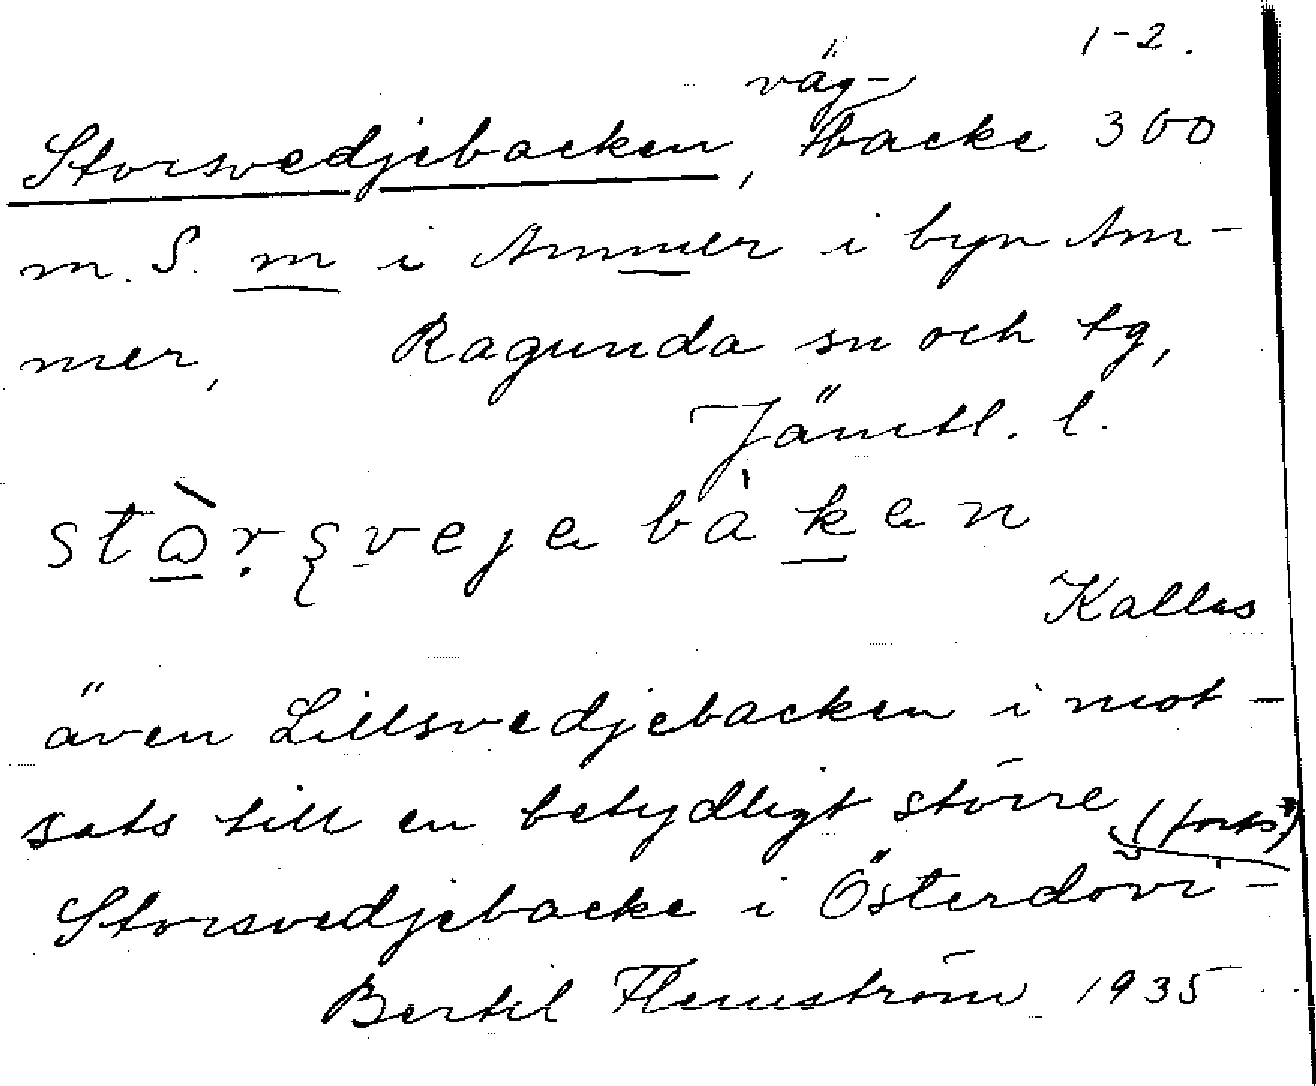 1-2.
väg-
Storsvedjebacken, backe 300
m. S. m i Ammer i byn Am-
mer, Ragunda sn och tg,
Jämtl. l.
stòrsveje bàken
Kallas
även Lillsvedjebacken i mot-
sats till en betydligt större (forts)
Storsvedjebacke i Österdövi-
Bertil Flemström 1935